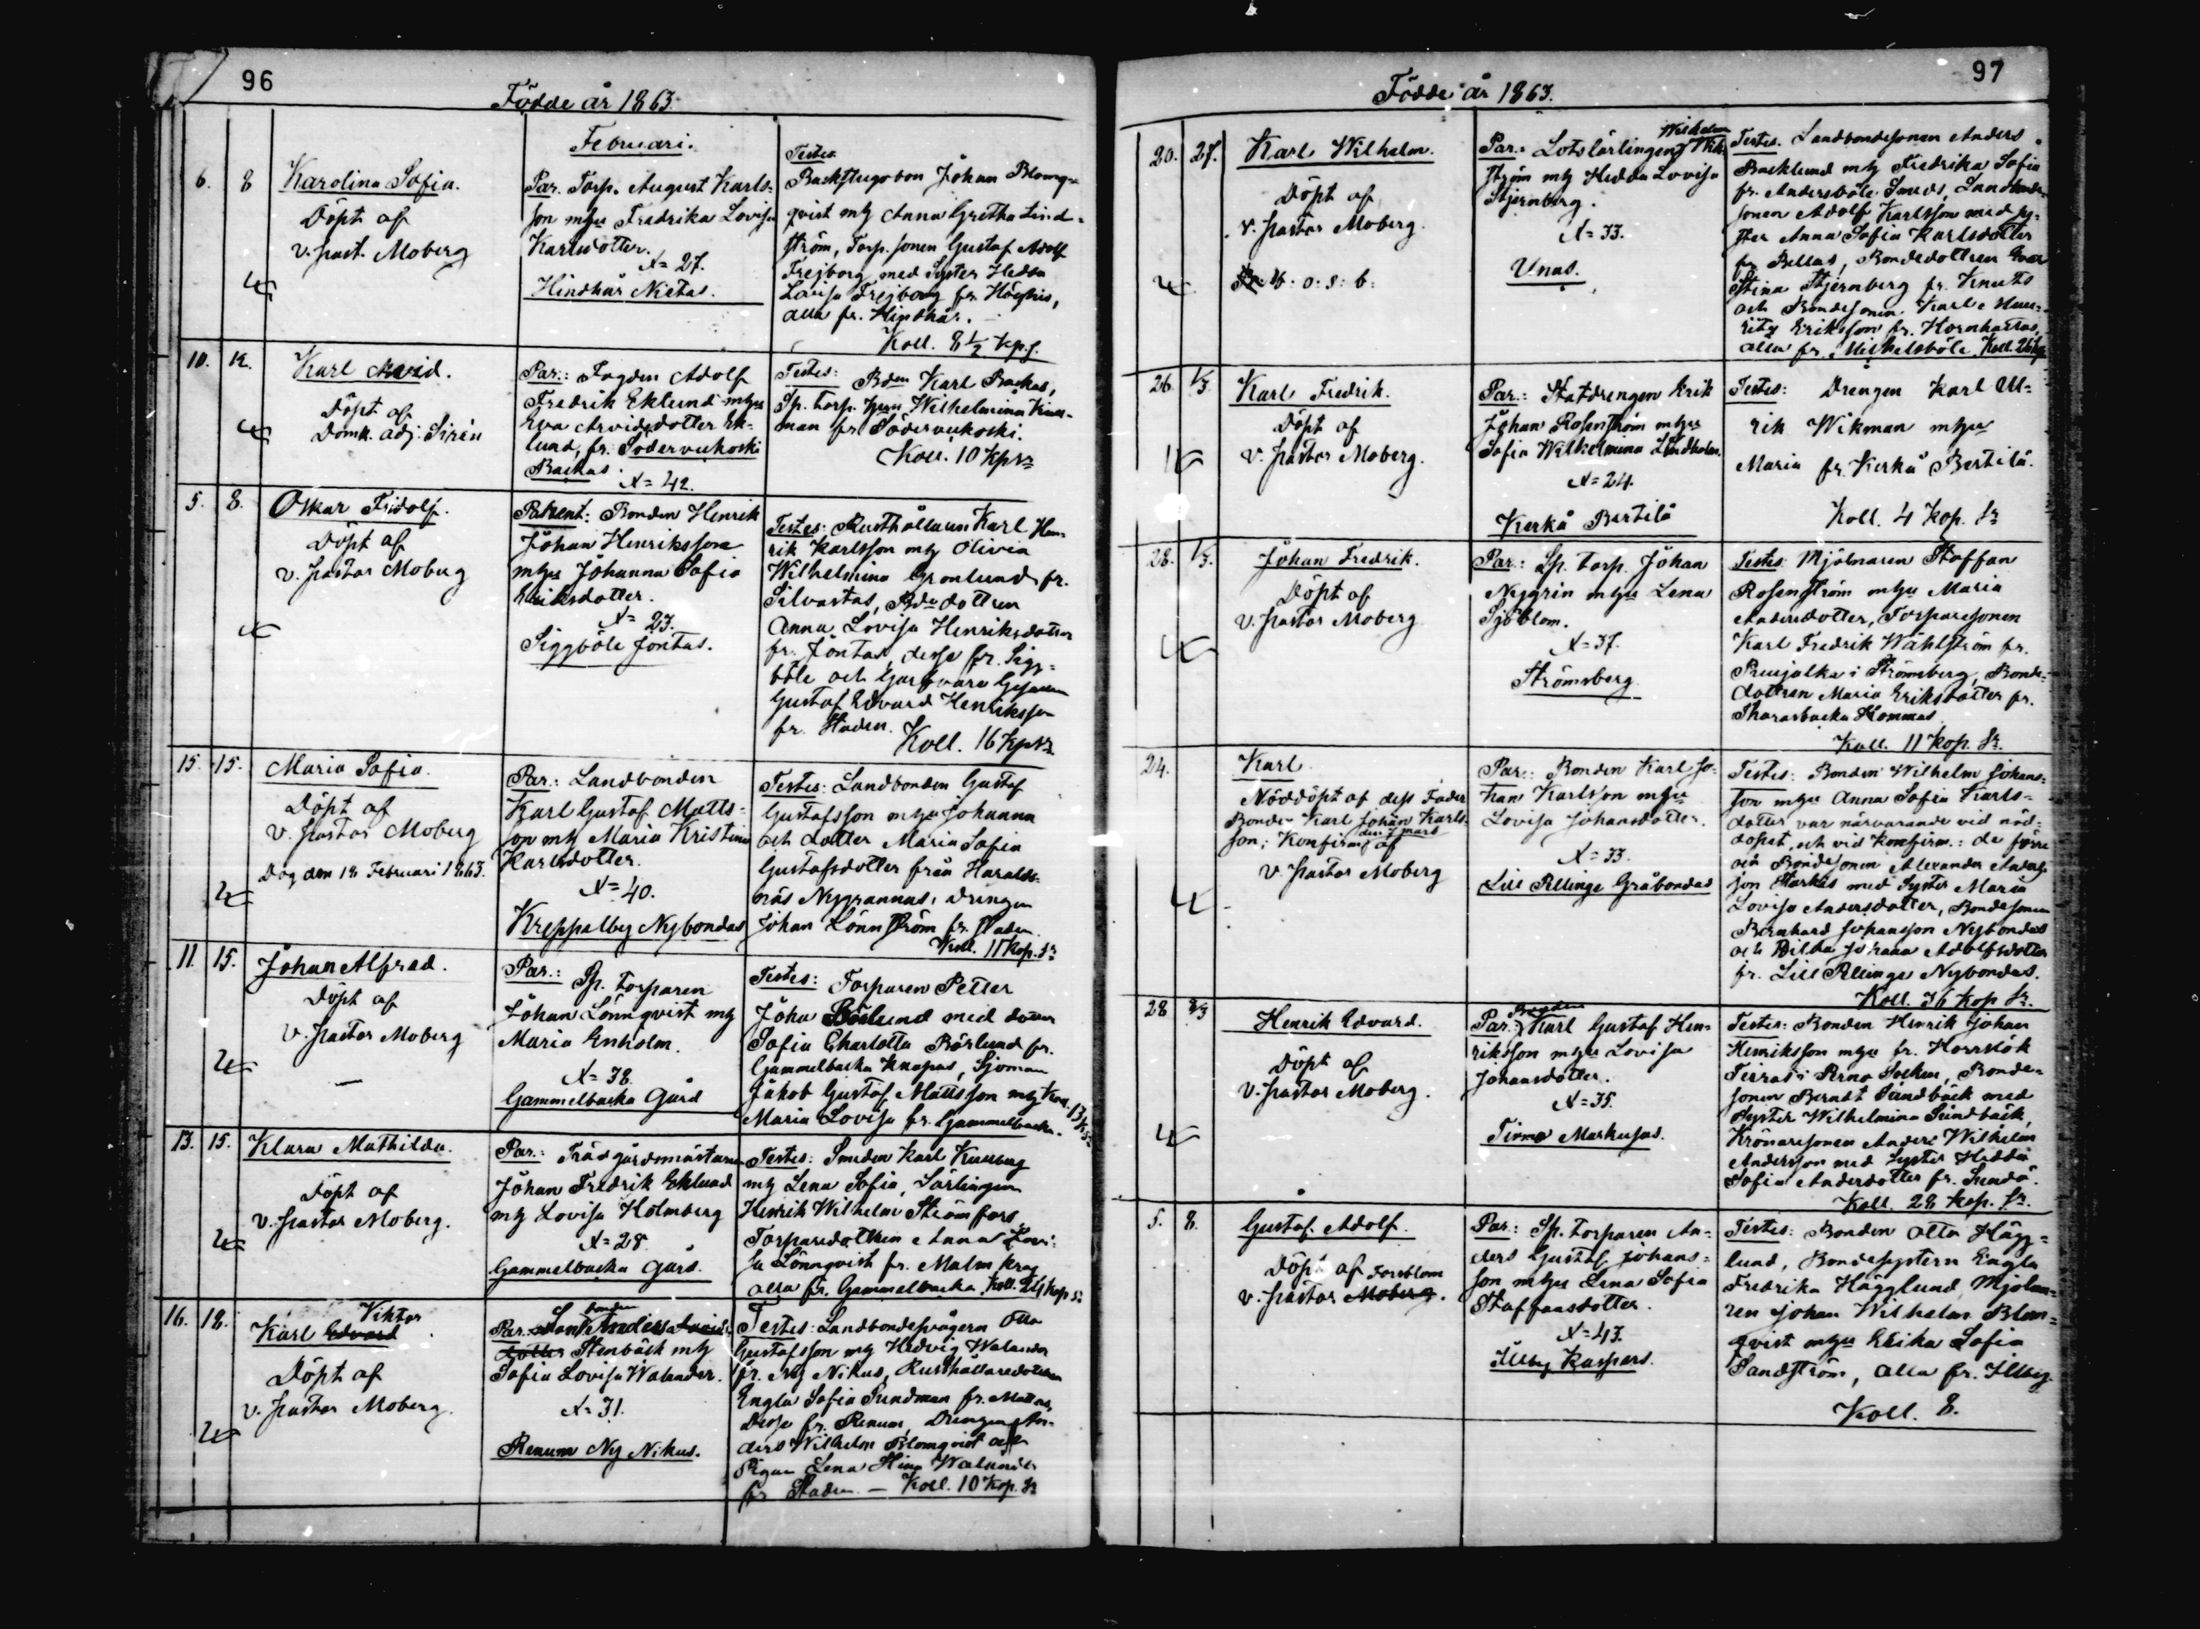 96
Födde år 1863.
Februari.
6. 8
Karolina Sofia.
Döpt af
v. past. Moberg
Par. Torp. August Karls-
son mhu Fredrika Lovisa
Karlsdotter.
N= 27.
Hindhår Nietas.
Testes
Backstugobon Johan Blomq-
qvist mh Anna Gretha Lind-
ström, Torp. sonen Gustaf Adolf
Frejborg med Syster Hedda
Lovisa Frejborg fr.
alla fr. Hindhår.
Koll. 8 1/2 kp. s.
10. 12.
Karl Arvid.
Döpt af
Domk. adj. Sirén
Par.: Fogden Adolf
Fredrik Eklund mhu
Eva Arvidsdotter Ek-
lund, fr. Södervekoski
Backas.
N= 42.
Testes: Bden Karl Backas,
Sp. torp. Wilhelmina
fr. Södervekoski.
Koll. 10 kp sr
5. 8.
Oskar Fridolf.
Döpt af
v. pastor Moberg
Parent: Bonden Henrik
Johan Henriksson
mhu Johanna Sofia
Eriksdotter.
N= 23.
Siggböle Jontas.
Testes: Rusthållaren Karl Hen-
rik Karlsson mh Olivia
Wilhelmina Gronlund fr.
Silvastas, Bde dottren
Anna Lovisa Henriksdotter
fr. Jontas, desse fr. Sigg-
böle och Garfvare Gesällen
Gustaf Edvard Henriksson
fr. Staden.
Koll. 16 kp sr.
15. 15.
Maria Sofia.
Döpt af
v. pastor Moberg
Dog den 18 Februari 1863.
Par.: Landbonden
Karl Gustaf Matts-
son mh Maria Kristina
Karlsdotter.
N= 40.
Kreppelby Nybondas
Testes: Landbonden Gustaf
Gustafsson mhu Johanna
och dotter Maria Sofia
Gustafsdotter från Harald-
näs Nygrannas, drengen
Johan Lönnström fr. Staden.
Koll. 11 kop. sr
11. 15.
Johan Alfred.
Döpt af
v. pastor Moberg
Par.: Sp. torparen
Johan Lönnqvist mh
Maria Enholm.
N= 38.
Gammelbacka Gård
Testes: Torparen Petter
Johan Börlund med dotter
Sofia Charlotta Börlund fr.
Gammelbacka Knapas, Sjoman
Jakob Gustaf Mattsson mh
Maria Lovisa fr. Gammelbacka.
Koll. 13 k sr
13. 15.
Klara Mathilda.
Döpt af
v. pastor Moberg.
Par.: Trädgårdsmästaren
Johan Fredrik Eklund
mh Lovisa Holmberg
N= 28.
Gammelbacka Gård.
Testes: Smeden Karl Kullberg
mh Lena Sofia, Lärlingen
Henrik Wilhelm Strömfors
Torparedottren Anna Lovi-
sa Lönnqvist fr. Malm krog
alla fr. Gammelbacka. Koll. 24 kop sr
16. 18.
Viktor
Karl Edvard
Döpt af
v. pastor Moberg.
Par. Landbonden Anders
Stenbäck mh
Sofia Lovisa Walander.
N= 31.
Renum Ny Nikus.
Testes: Landbondesvågern Otto
Gustafsson mh Hedvig Walander
fr. Ny Nikus, Rusthållaredottren
Engla Sofia Sundman fr. Mattas,
desse fr. Renum, Drengen An-
ders Wilhelm Blomqvist och
Pigan Lena Stina Walander
fr. Staden. — Koll. 10 kop. sr
97
Födde år 1863.
20. 27.
Karl Wilhelm.
Döpt af
v. pastor Moberg.
Par.: Lotslärlingen Wilhelm Wik-
ström mh Hedda Lovisa
Stjernberg.
N= 33.
Unas.
Testes. Landbondesonen Anders
Backlund mh Fredrika Sofia
fr. Andersböle Smeds, Landbonde-
sonen Adolf Karlsson med sy-
ster Anna Sofia Karlsdotter
fr. Bellas, Bondedottren Eva
Stina Stjernberg fr. Knuts
och Bondesonen Karl Hen-
rik Eriksson fr. Hornhattas,
alla fr. Mickelsböle.
26. 1/3.
Karl Fredrik.
Döpt af
v. pastor Moberg.
Par.: Statdrengen Erik
Johan Rosenström mhu
Sofia Wilhelmina Lindholm.
N= 24.
Kerkå Bertilä
Testes: Drengen Karl Ul-
rik Wikman mhu
Maria fr. Kerkå Bertilä.
Koll. 4 kop. sr
28. 1/3.
Johan Fredrik.
Döpt af
v. pastor Moberg
Par.: Sp. torp. Johan
Nygrin mhu Lena
Sjöblom.
N= 37.
Strömsberg
Testes Mjölnaren Staffan
Rosenström mhu Maria
Andersdotter, Torparesonen
Karl Fredrik Wahlström fr.
i Strömsberg, Bonde-
dottren Maria Eriksdotter fr.
Tharasbacka Hommas.
Koll. 11 kop. sr.
24.
Karl
Nöddöpt af dess Fader
Bonden Karl Johan Karls-
son; Konfirm. den 7 mars af
v. pastor Moberg
Par.: Bonden Karl Jo-
han Karlsson mhu
Lovisa Johansdotter.
N= 33.
Lill Pellinge Gråbondas
Testes: Bonden Wilhelm Johans-
son mhu Anna Sofia Karls-
dotter var närvarande vid nöd-
döpet, och vid konfirm.: de förre
och Bondesonen Alexander Anders-
son Starkis med Syster Maria
Lovisa Andersdotter, Bondesonen
Bernhard Johansson Nybondas
och Hilda Johana Adolfsdotter
fr. Lill Pellinge Nybondas.
Koll. 36 kop sr.
28 8/3
Henrik Edvard.
Döpt af
v. pastor Moberg.
Par.: Bonden Karl Gustaf Hen-
riksson mhu Lovisa
Johansdotter.
N= 35.
Tirmo Markusas.
Testes: Bonden Henrik Johan
Henriksson mhu fr. Horrslök
i Perno Socken, Bonde-
sonen Berndt Sundbäck med
syster Wilhelmina Sundbäck,
Krönaresonen Anders Wilhelm
Andersson med Syster Hedda
Sofia Andersdotter fr. Sundö.
Koll. 28 kop. sr.
5. 8.
Gustaf Adolf.
Döpt af Forsblom
v. pastor Moberg.
Par.: Sp. torparen An-
ders Gustaf Johans-
son mhu Lena Sofia
Staffansdotter.
N= 43.
Illby Kaspers.
Testes: Bonden Otto Hägg-
lund, Bondesystern Engla
Fredrika Hägglund, Mjölna-
ren Johan Wilhelm Blom-
qvist mhu Erika Sofia
Sandström, alla fr. Illby
Koll. 8.